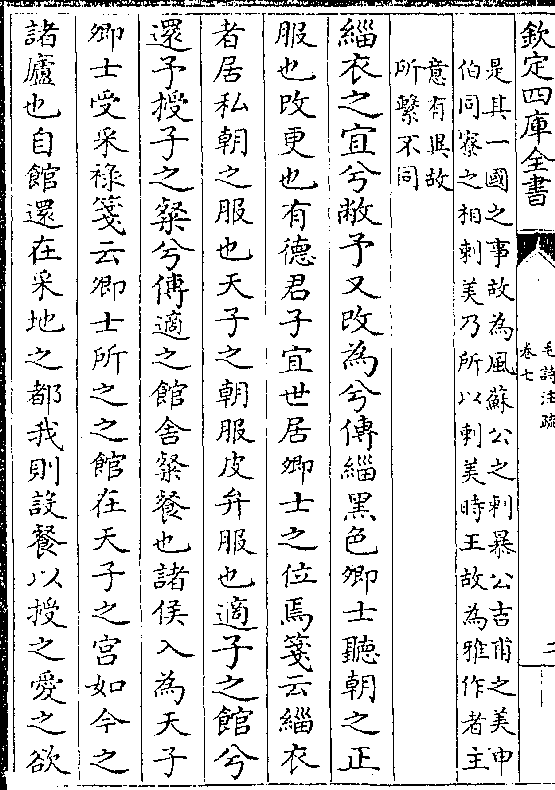 欽定四庫全書
毛詩注疏
卷七
二
是其一國之事故為風蘇公之刺暴公吉甫之美申
伯同寮之相刺美乃所以刺美時王故為雅作者主
意有異故
所繫不同
緇衣之宜兮敝予又改為兮傳緇黑色卿士聽朝之正
服也改更也有德君子宜世居卿士之位焉箋云緇衣
者居私朝之服也天子之朝服皮弁服也適子之館兮
還予授子之粲兮傳適之館舍粲餐也諸侯入為天子
卿士受采祿箋云卿士所之之館在天子之宮如今之
諸廬也自館還在采地之都我則設餐以授之愛之欲